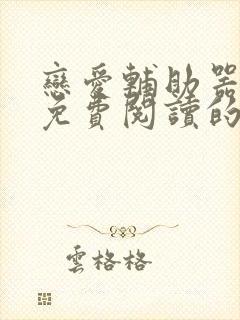 戀愛輔助器
免費閱讀的
雲格格